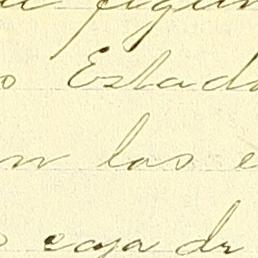 figur
s Estado
n las e
s caja de